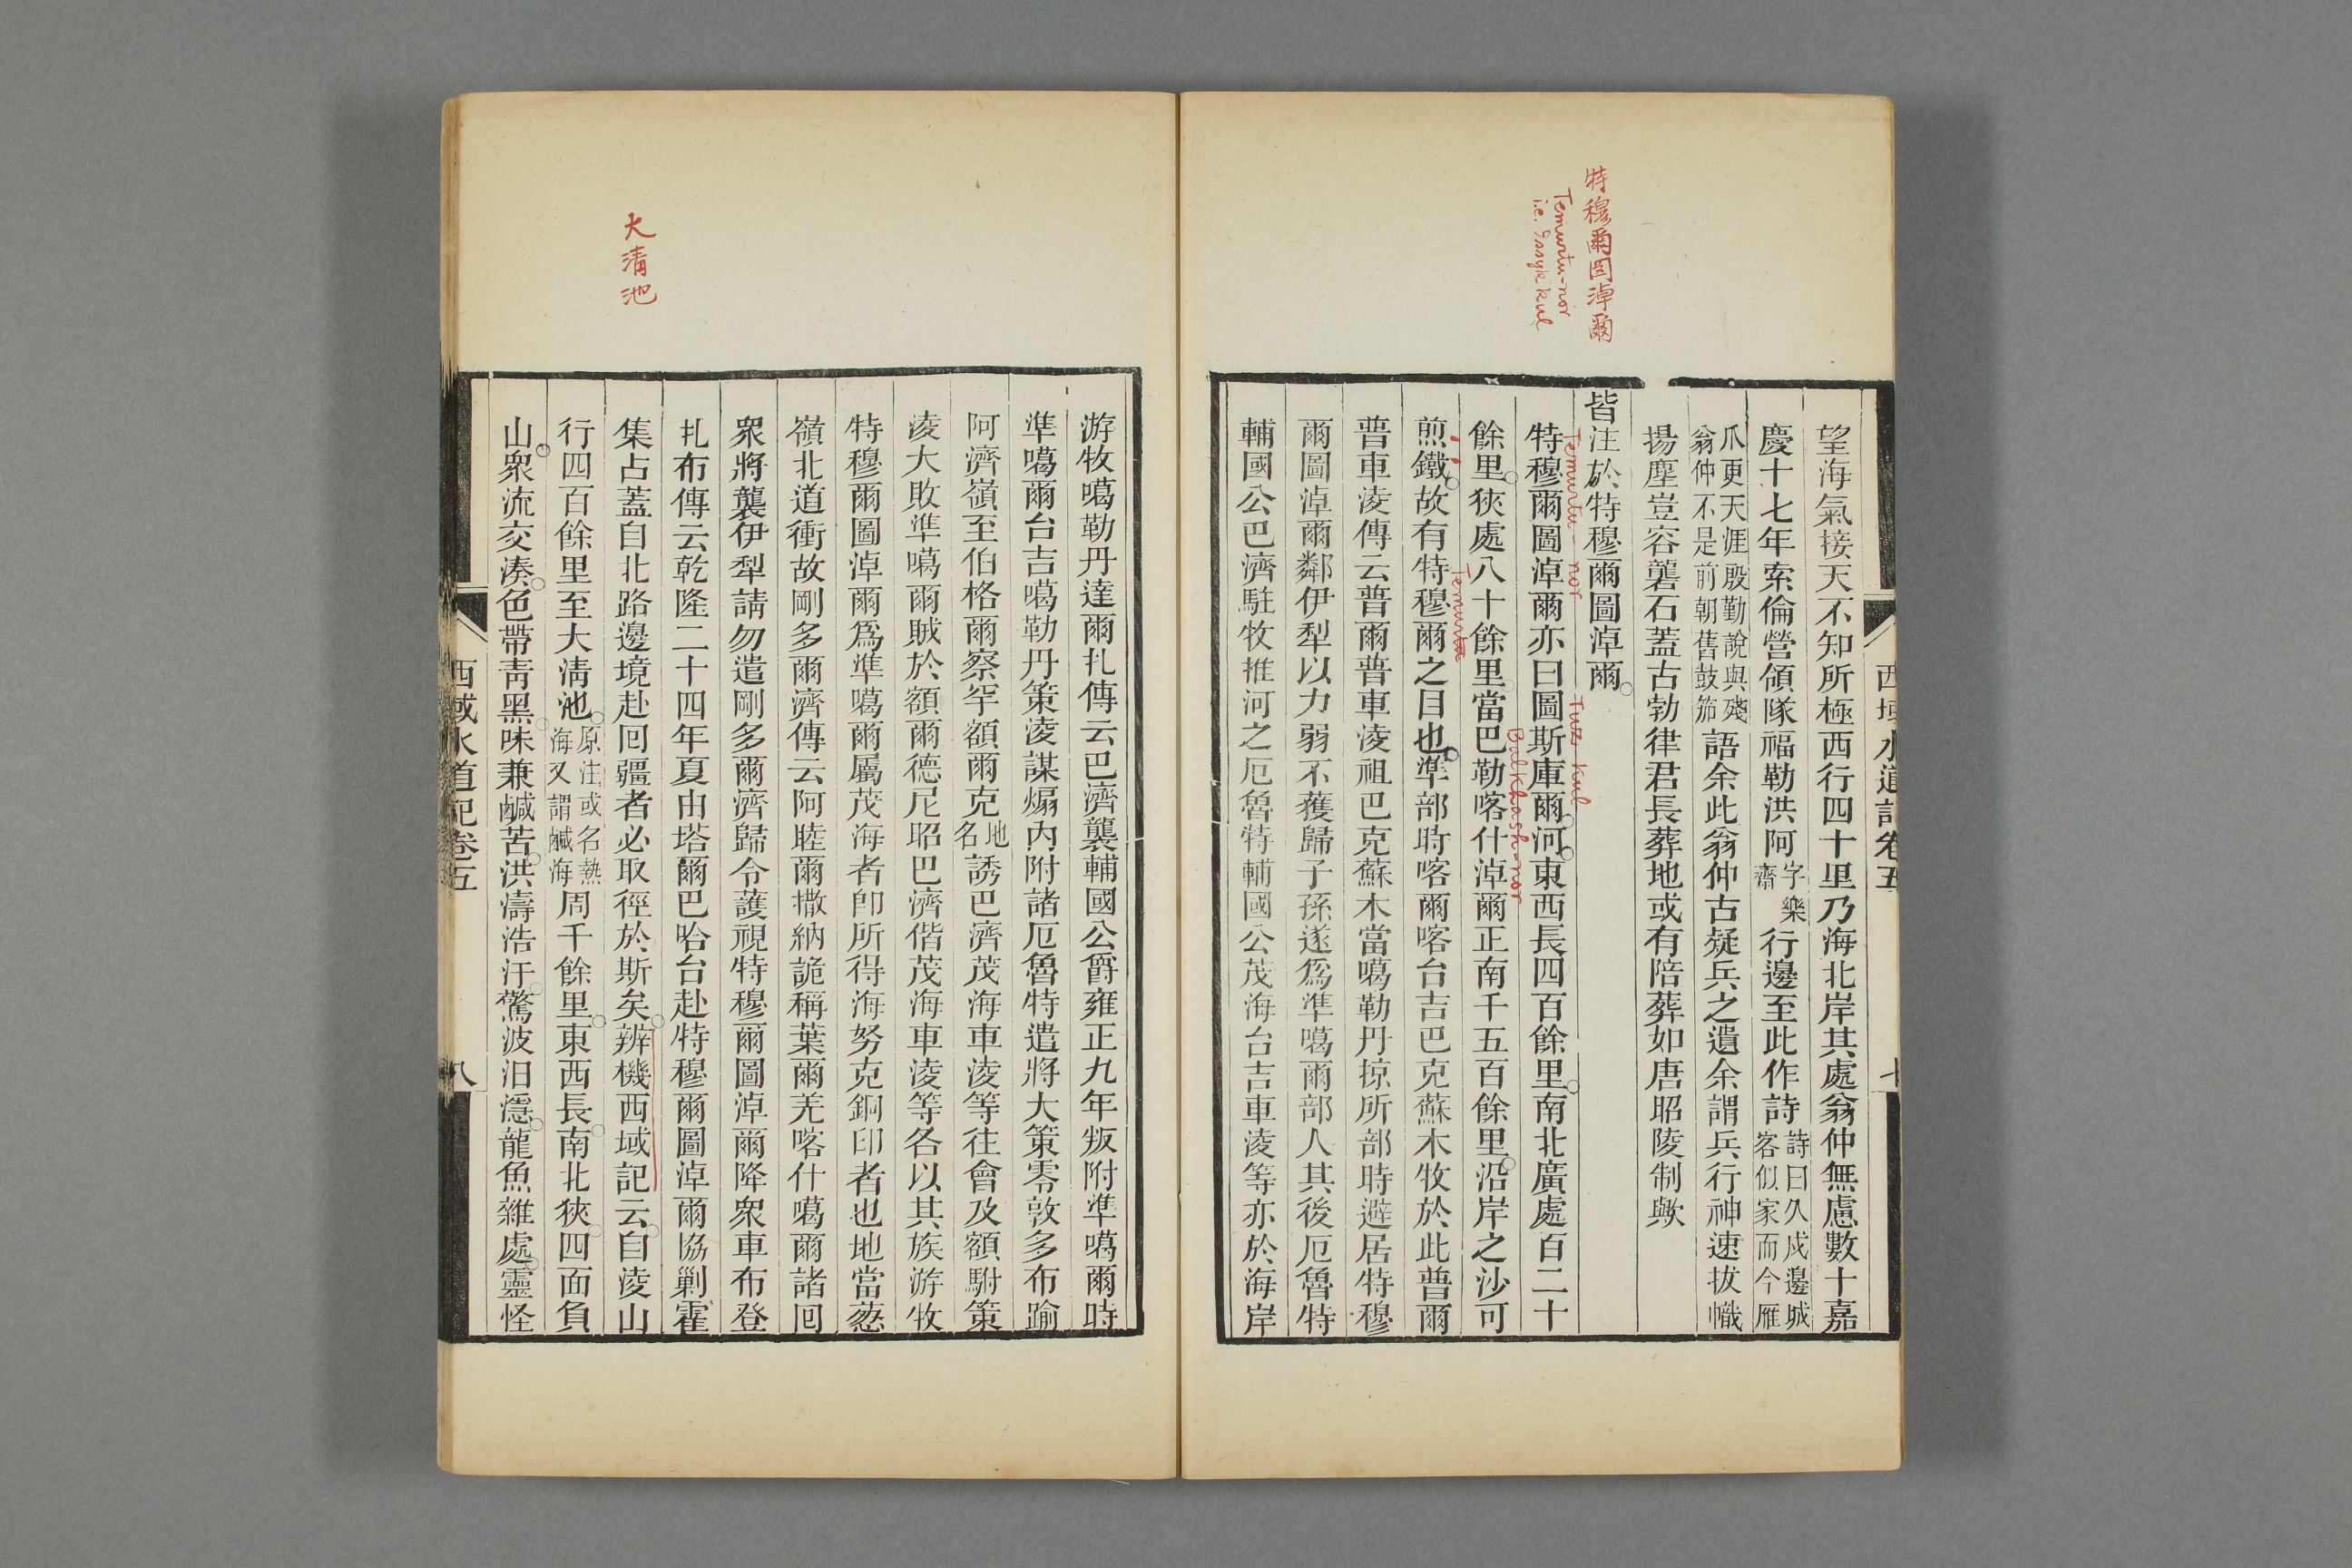 特穆爾圖淖爾
Temurtu-nor
i.e. Issyk kul
西域水道記卷五
七
望海氣接天不知所極西行四十里乃海北岸其處翁仲無慮數十嘉
慶十七年索倫營領隊福勒洪阿字樂齋行邊至此作詩詩曰久戍邊城客似家而今雁
爪更天涯殷勤說與殘翁仲不是前朝舊鼓笳語余此翁仲古疑兵之遺余謂兵行神速拔幟
揚塵豈容礱石蓋古勃律君長葬地或有陪葬如唐昭陵制歟
皆注於特穆爾圖淖爾
Temurtu nor Tuz kul
特穆爾圖淖爾亦曰圖斯庫爾河東西長四百餘里南北廣處百二十
Balkhash-nor
餘里狹處八十餘里當巴勒喀什淖爾正南千五百餘里沿岸之沙可
Temurtu
煎鐵故有特穆爾之目也準部時喀爾喀台吉巴克蘇木牧於此普爾
普車淩傳云普爾普車淩祖巴克蘇木當噶勒丹掠所部時避居特穆
爾圖淖爾鄰伊犁以力弱不獲歸子孫遂爲準噶爾部人其後厄魯特
輔國公巴濟駐牧推河之厄魯特輔國公茂海台吉車淩等亦於海岸
大清池
游牧噶勒丹達爾扎傳云巴濟襲輔國公爵雍正九年叛附準噶爾時
準噶爾台吉噶勒丹策淩謀煽內附諸厄魯特遣將大策零敦多布踰
阿濟嶺至伯格爾察罕額爾克地名誘巴濟茂海車淩等往會及額駙策
淩大敗準噶爾賊於額爾德尼昭巴濟偕茂海車淩等各以其族游牧
特穆爾圖淖爾爲準噶爾屬茂海者卽所得海努克銅印者也地當蔥
嶺北道衝故剛多爾濟傳云阿睦爾撒納詭稱葉爾羌喀什噶爾諸回
衆將襲伊犁請勿遣剛多爾濟歸令護視特穆爾圖淖爾降衆車布登
扎布傳云乾隆二十四年夏由塔爾巴哈台赴特穆爾圖淖爾協剿霍
集占蓋自北路邊境赴回疆者必取徑於斯矣辨機西域記云自淩山
行四百餘里至大淸池原注或名熱海又謂鹹海周千餘里東西長南北狹四面負
山衆流交湊色帶靑黑味兼鹹苦洪濤浩汗驚波汩㶏龍魚雜處靈怪
西域水道記卷五
八